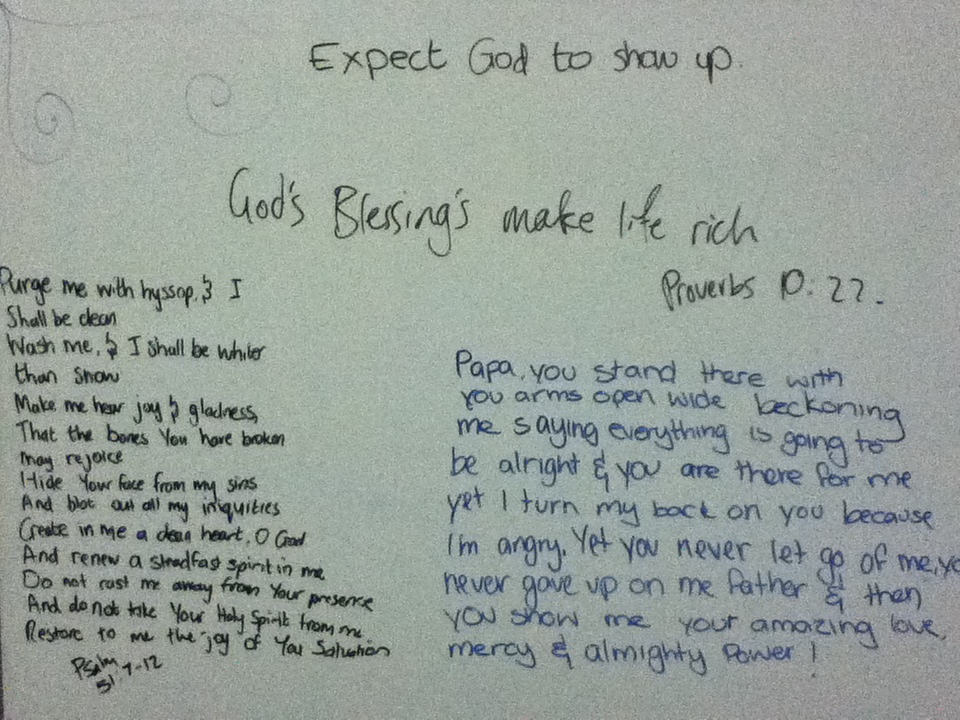 Expect God to show up.
God's Blessing's make life rich
Proverbs 10:22.
Purge me with hyssop, & I
Shall be clean
Wash me, & I shall be whiter
than snow
Make me hear joy & gladness,
That the bones You have broken
may rejoice
Hide Your face from my sins
And blot out all my iniquities
Create in me a clean heart, O God
And renew a steadfast spirit in me
Do not cast me away from Your presence
And do not take Your Holy Spirit from me
Restore to me the joy of You Salvation
Psalm
51 7-12
Papa, you stand there with
you arms open wide beckoning
me saying everything is going to
be alright & you are there for me
yet I turn my back on you because
I'm angry. Yet you never let go of me, yo
never gave up on me Father & then
you show me your amazing love,
mercy & almighty Power!